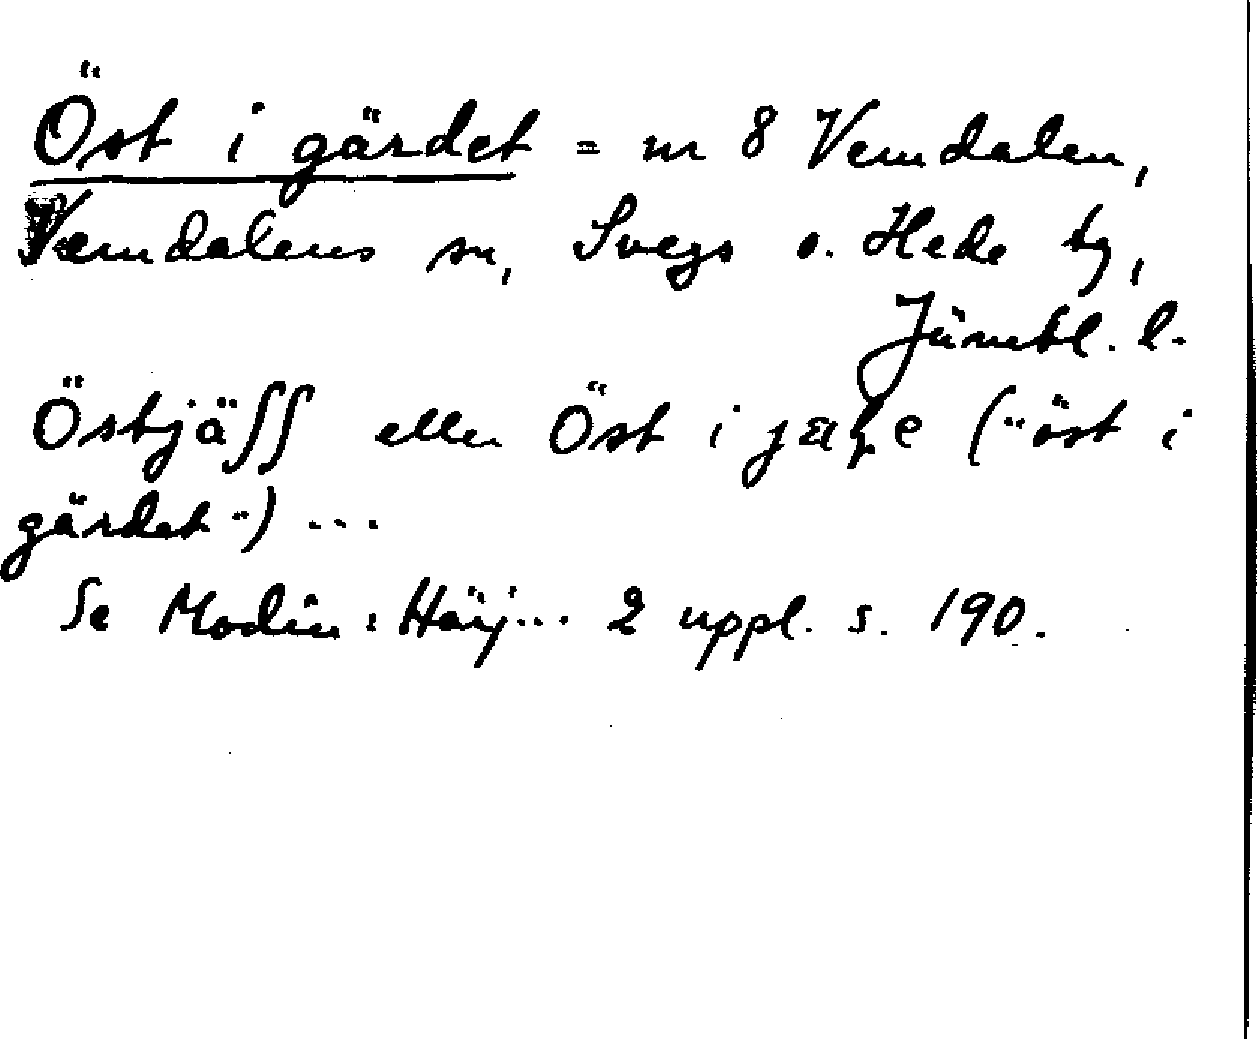 Öst i gärdet = nr 8 Vemdalen,
Vemdalens sn, Svegs o. Hede tg,
Jämtl. l.
Östjäſſ eller Öst i ("öst i
gärdet") ...
Se Modin: Härj... 2 uppl. s. 190.